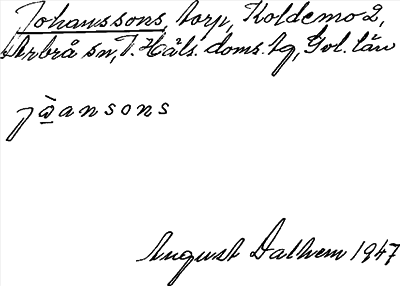 Johanssons, torp, Koldemo 2,
Arbrå sn, V. Häls. doms. tg, Gvl. län
jò̲ansons
August Dalhem 1947